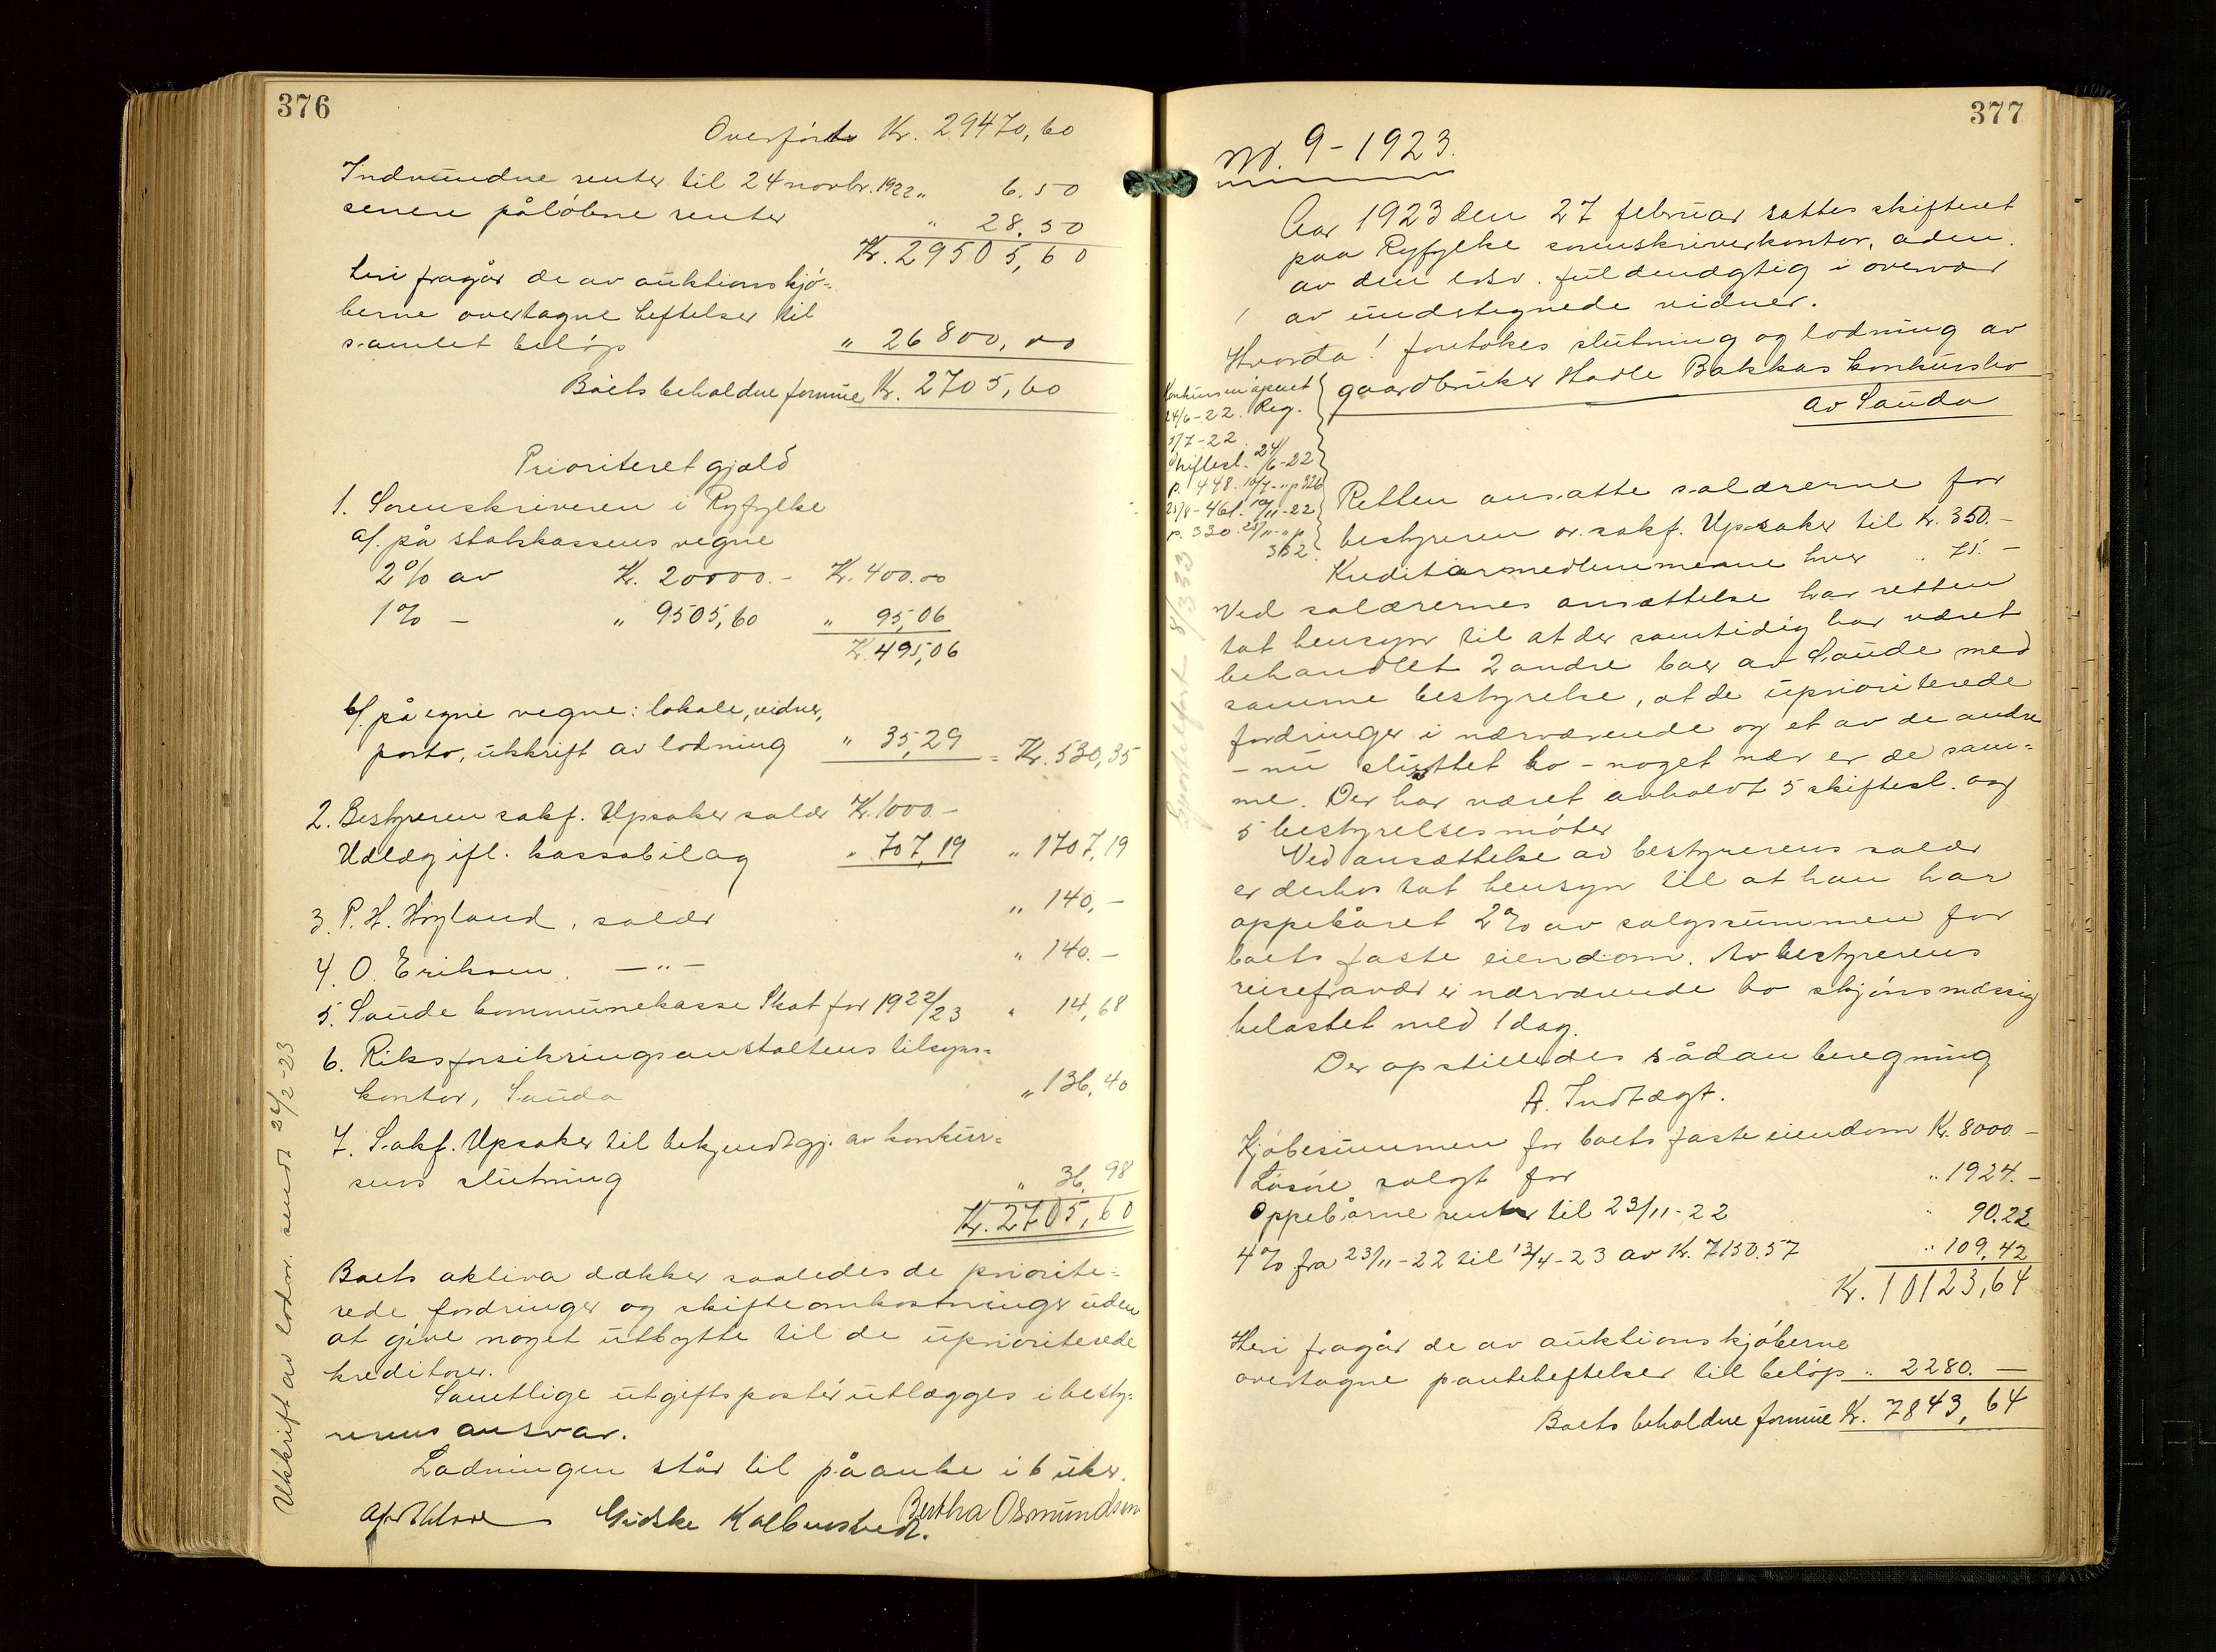 376
Overført Kr. 29470,60
Indvundne renter til 24 novbr. 1922 „ 6.50
senere påløbne renter „ 28.50
Kr. 29505,60
heri fragår de av auktionskjø-
berne overtagne heftelser til
samlet beløp „ 26800,00
Boets beholdne formue Kr. 2705,60
Prioriteret gjæld
1. Sorenskriveren i Ryfylke
a/. på statskassens vegne
2% av Kr. 20000.- Kr. 400.00
1% - „ 9505,60 „ 95,06
Kr. 495,06
b/. på egne vegne: lokale, vidner,
porto, utskrift av lodning „ 35,29 = Kr. 530,35
2. Bestyreren sakf. Upsaker salær Kr. 1000.-
Utlæg ifl. kassabilag „ 707,19 „ 1707,19
3. P. H. Høyland, salær „ 140,-
4. O. Eriksen. —„— „ 140.-
5. Saude kommunekasse Skat for 1922/23 „ 14,68
6. Riksforsikringsanstaltens tilsyns-
kontor, Sauda „ 136,40
7. Sakf. Upsaker til bekjendtgj. av konkur-
sens slutning „ 36,98
Kr. 2705,60
Boets aktiva dækker saaledes de priorite-
rede fordringer og skifteomkostninger uden
at give noget utbytte til de uprioriterede
kreditorer.
Samtlige utgiftsposter utlægges i besty-
rerens ansvar.
Lodningen står til påanke i 6 uker.
Gidske Kolbenstvedt. Bertha Osmundsen
Utskrift av lodn. sendt 27/2-23
377
Nr. 9 - 1923.
Aar 1923 den 27 februar sattes skifteret
paa Ryfylke sorenskriverkontor, adm.
av den edsv. fuldmægtig i overvær
av undertegnede vidner.
Hvorda! foretokes slutning og lodning av
gaardbruker Hadle Bakkas konkursbo
av Sauda
Konkursen åpnet
24/6-22. Reg.
5/7-22.
Skiftesl. 24/6-22
p. 448. 10/7-„ p 326
25/8- 461. 10/11-22
p. 330. 25/11-„ p
352.
Retten ansatte salærerne for
bestyreren or. sakf. Upsaker til Kr. 350.-
Kreditormedlemmerne hver „ 75.-
Ved salærernes ansættelse har retten
tat hensyn til at der samtidig har været
behandlet 2 andre boer av Saude med
samme bestyrelse, at de uprioriterede
fordringer i nærværende og et av de andre
- nu sluttet bo - noget nær er de sam-
me. Der har været avholdt 5 skiftesl. og
5 bestyrelsesmøter
Ved ansættelse av bestyrerens salær
er derhos tat hensyn til at han har
oppebåret 2% av salgssummen for
boets faste eiendom. Av bestyrerens
reisefravær er nærværende bo skjønsmæssig
belastet med 1 dag.
Der opstilledes sådan beregning
A. Indtægt.
Kjøbesummen for boets faste eiendom Kr. 8000.-
Løsøre solgt for „ 1924.-
Oppebårne renter til 23/11-22 „ 90.22
4% fra 23/11-22 til 13/4-23 av Kr. 7150.57 „ 109,42
Kr. 10123,64
Heri fragår de av auktionskjøberne
overtagne panteheftelser til beløp „ 2280.—
Boets beholdne formue Kr. 7843,64